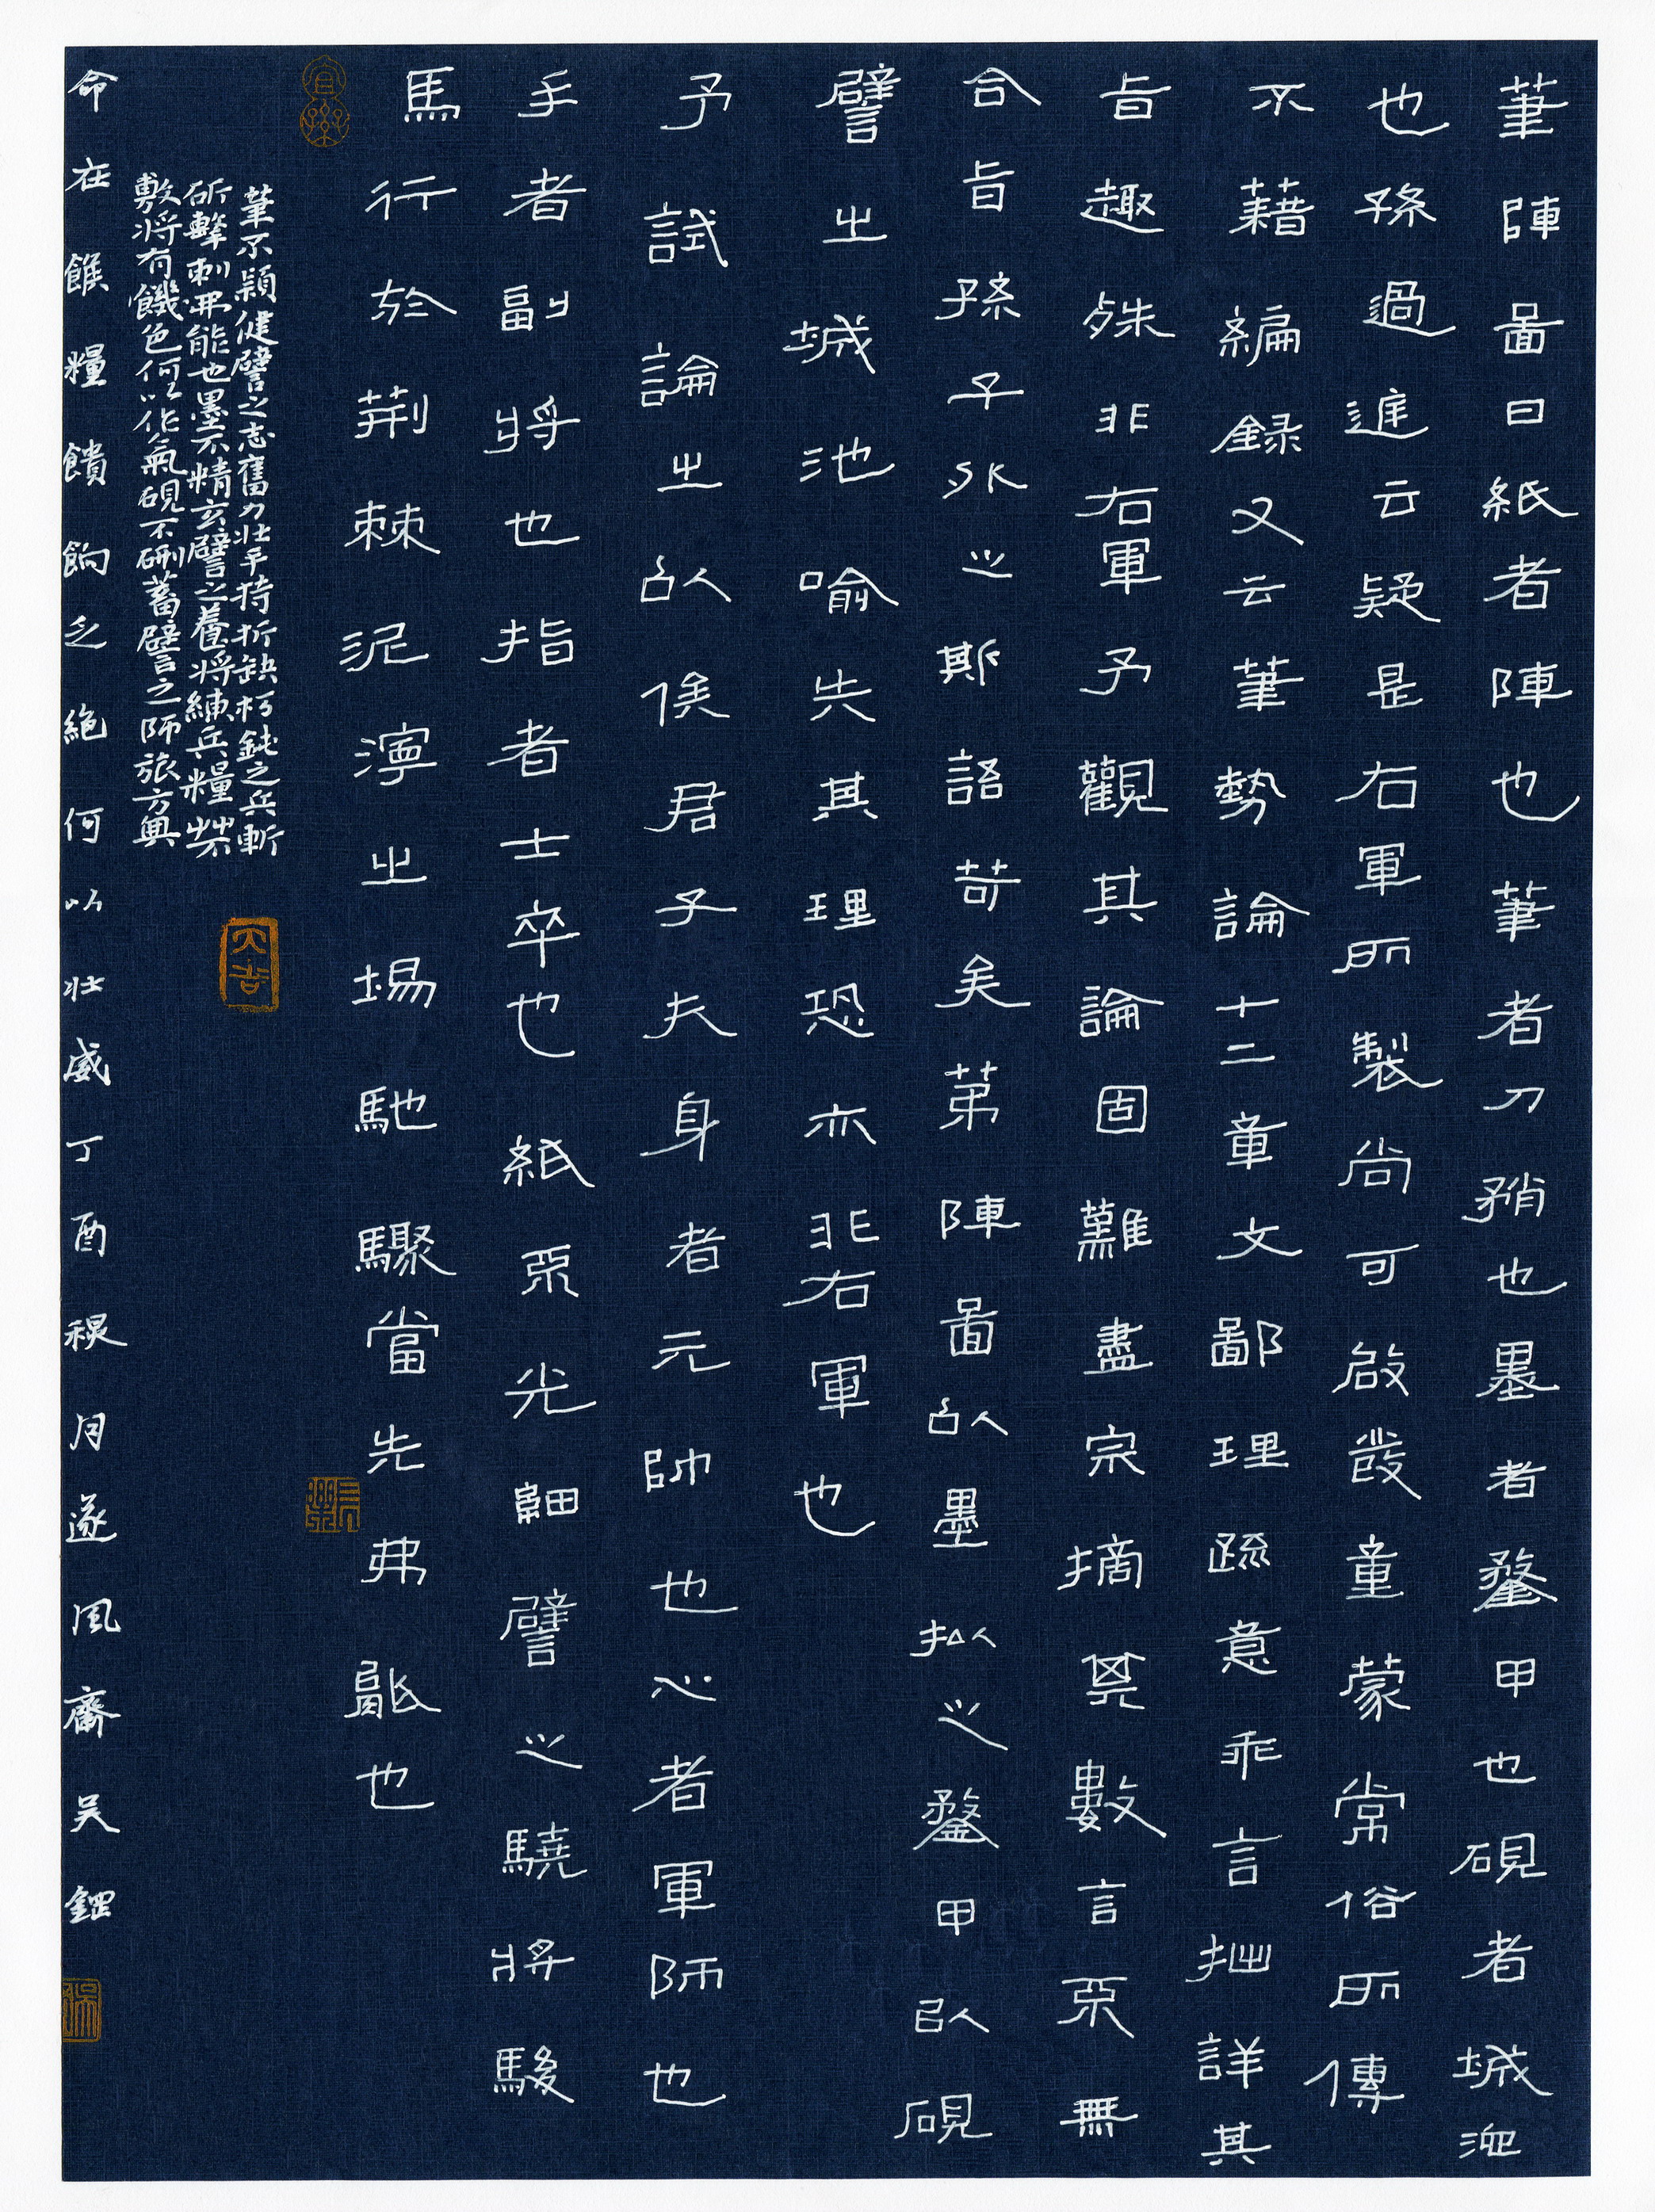 筆陣圖曰紙者陣也筆者刀矟也墨者鍪甲也硯者城池
也孫過進云疑是右軍所製尚可啟發童蒙常俗所傳
不藉編録又云筆勢論十二章文鄙理疏意乖言拙詳其
旨趣殊非右軍予觀其論固難盡宗摘其數言亦無
合旨孫子外之斯語苛矣苐陣圖以墨擬之鍪甲以硯
譬之城池喻失其理恐亦非右軍也
予試論之以俟君子夫身者元帥也心者軍師也
手者副將也指者士卒也紙亦光細譬之驍將駿
馬行於荆棘泥濘之場馳驟當先弗能也
筆不穎健譬之志舊力壯手持折缺朽鈍之兵斬
斫擊刺弗能也墨不精玄譬之養將練兵糧 不
敷將有饑色何以作氣硯不 蓄譬之師旅方興
命在餱糧饋餉乏絶何以壯威丁酉 月遂風齋吴鋰
大吉